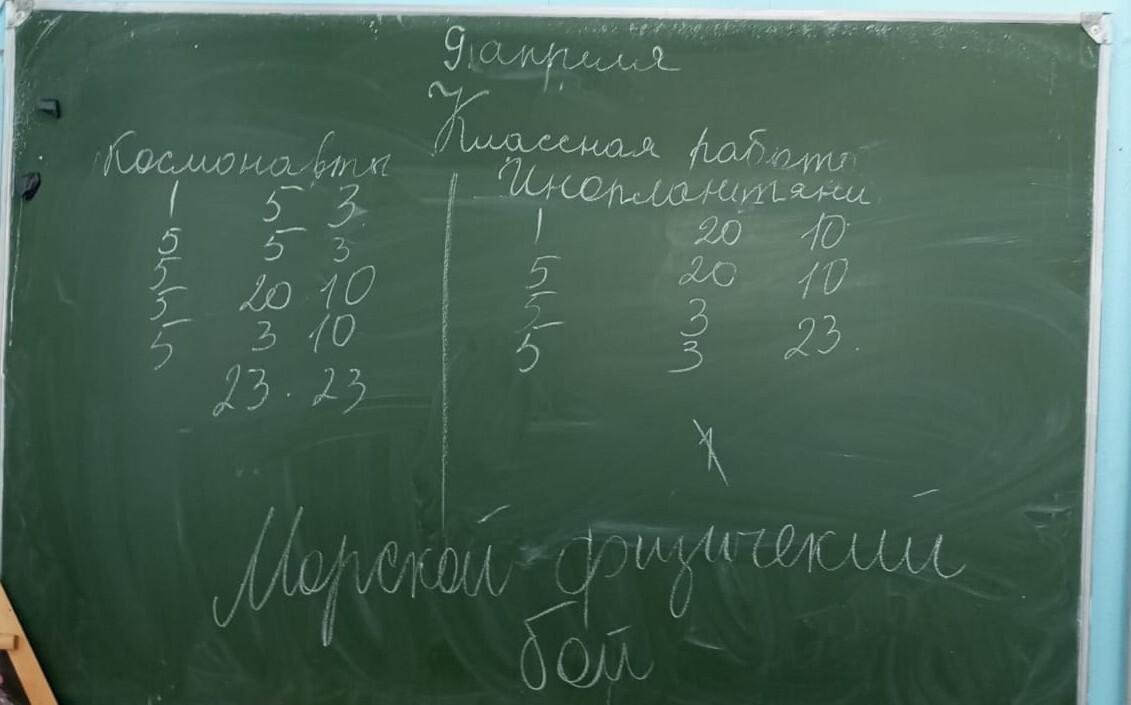 9 апреля
Классная работа
Космонавты
1 5 3
5 5 3
5 20 10
5 3 10
5 23. 23
Инопланитяни
1 20 10
5 20 10
5 3 23.
5 3
Морской физичекий
бой